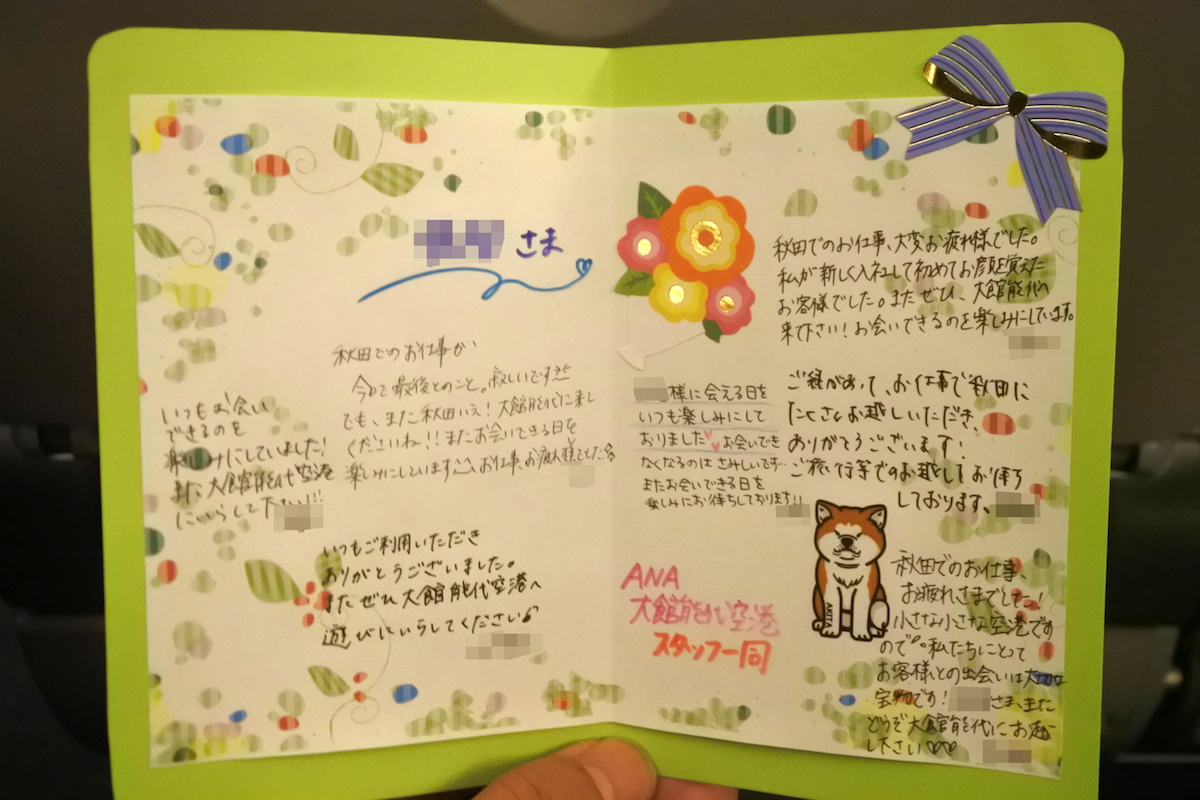 さま
秋田でのお仕事が
今日で最後とのこと。寂しいです
でも、また秋田いえ!大館能代に来て
くださいね!!またお会いできる日を
楽しみにしています お仕事、お疲れ様でした
いつもお会い
できるのを
楽しみにしていました!
また大館能代空港
にいらして下さい!!
いつもご利用いただき
ありがとうございました。
またぜひ大館能代空港へ
遊びにいらしてください♪
秋田でのお仕事、大変お疲れ様でした。
私が新しく入社して初めてお顔を覚えた
お客様でした。またぜひ、大館能代へ
来て下さい!お会いできるのを楽しみにしています。
様に会える日を
いつも楽しみにして
おりました お会いでき
なくなるのはさみしいです…
またお会いできる日を
楽しみにお待ちしております!!
ご縁があって、お仕事で秋田に
たくさんお越しいただき、
ありがとうございます!
ご旅行等でのお越しもお待ち
しております。
ANA
大館能代空港
スタッフ一同
AKITA
秋田でのお仕事、
お疲れさまでした!
小さな小さな空港です
ので 私たちにとって
お客様との出会いは大切な
宝物です! さま、また
どうぞ大館能代にお越し
下さい♡♡